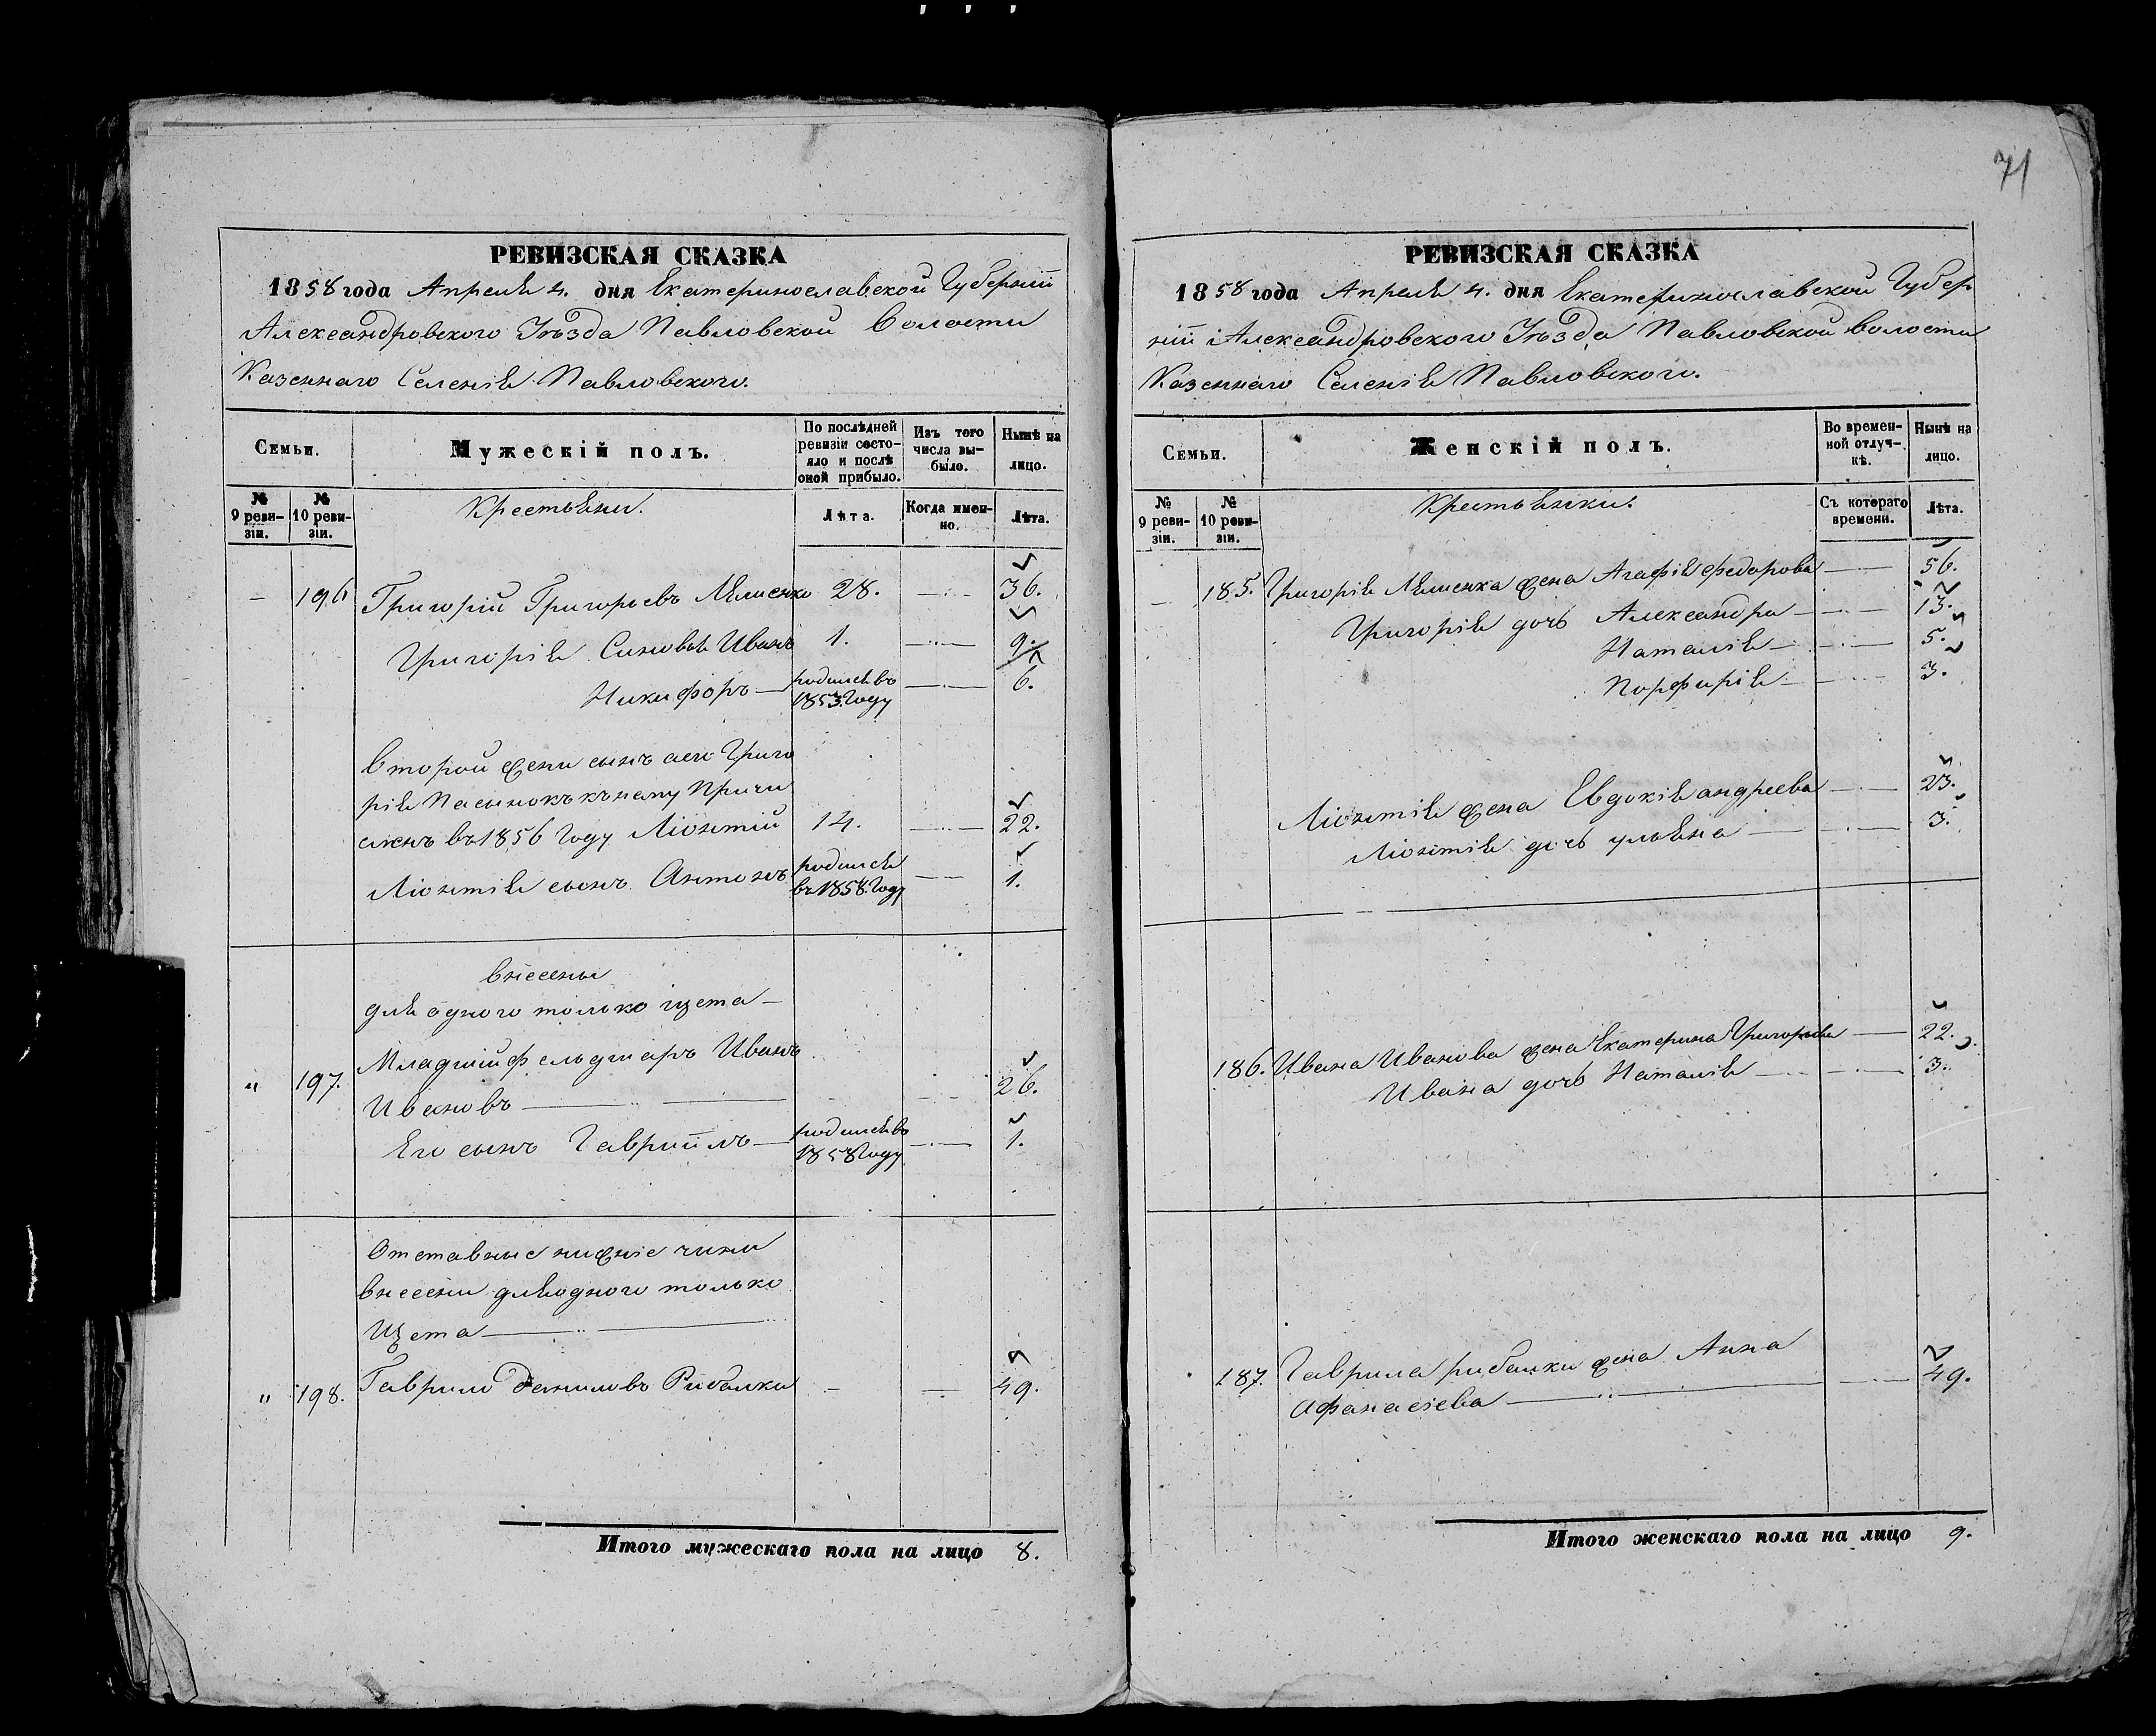 71
РЕВИЗСКАЯ СКАЗКА
1858 года Апреля 4. дня Екатеринославской Губерніи
Александровского Уѣзда Павловской Волости
Казеннаго Селенія Павловского.
Семьи.
Мужескій полъ.
По послѣдней ревизіи состояло и послѣ оной прибыло.
Изъ того числа выбыло.
Нынѣ на лицо.
№ 9 ревизіи.
№ 10 ревизіи.
Крестьяни.
Лѣта.
Когда именно.
Лѣта.
196 Григорій Григорьевъ Ляшенко 28. 36.
Григорія Сыновья Иванъ 1. 9.
Никифоръ родился въ 1853 Году 6.
Второй жени сынъ Григо
рія Пасынокъ къ нему Причи
сленъ въ 1856 Году 14. 22.
сынъ Антонъ родился въ 1858 Году 1.
внесены
для одного только щета
197. Младшій фельдшаръ Иванъ
Ивановъ 26.
Его сынъ Гавріилъ родился въ 1858 Году 1.
Отставные нижніе чини
внесени для одного только
Щета
198. Гаврило Даниловъ Рибалка 49.
Итого мужескаго пола на лицо 8.
РЕВИЗСКАЯ СКАЗКА
1858 года Апреля 4. дня Екатеринославской Губер
ніи Александровского Уѣзда Павловской волости
Казеннаго Селенія Павловского.
Семьи.
Женскій полъ.
Во временной отлучкѣ.
Нынѣ на лицо.
№ 9 ревизіи.
№ 10 ревизіи.
Крестьянки.
Съ котораго времени.
Лѣта.
185. Григорія Ляшенка жена Агафія Федорова 56.
Григорія дочь Александра 13.
Наталія 5.
Порфирія 3.
жена Евдокія андреева 23.
дочь ульяна 3.
186. Ивана Иванова жена Екатерина Григорьева 22.
Ивана дочь Наталія 3.
187. Гаврила рибалки жена Анна
Афанасіева 49.
Итого женскаго пола на лицо 9.